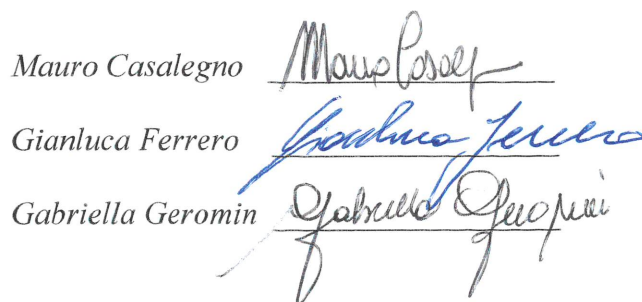 Mauro Casalegno Mauro Casaleg
Gianluca Ferrero Gianluca Ferrero
Gabriella Geromin Gabriella Geromin